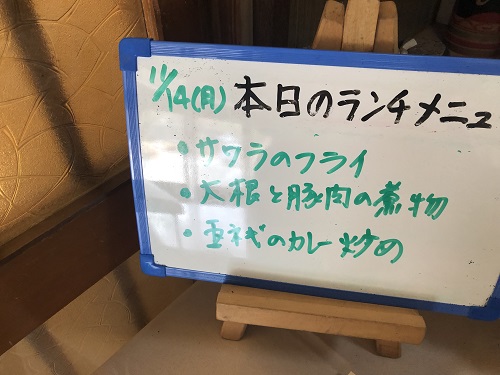 11/14(月) 本日のランチメニュ
・サワラのフライ
・大根と豚肉の煮物
・玉ネギのカレー炒め